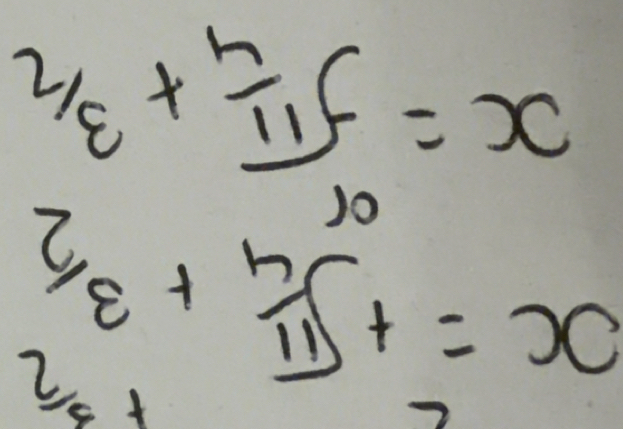 x = + √11/4 + 3/2
or
x = -√11/4 + 3/2